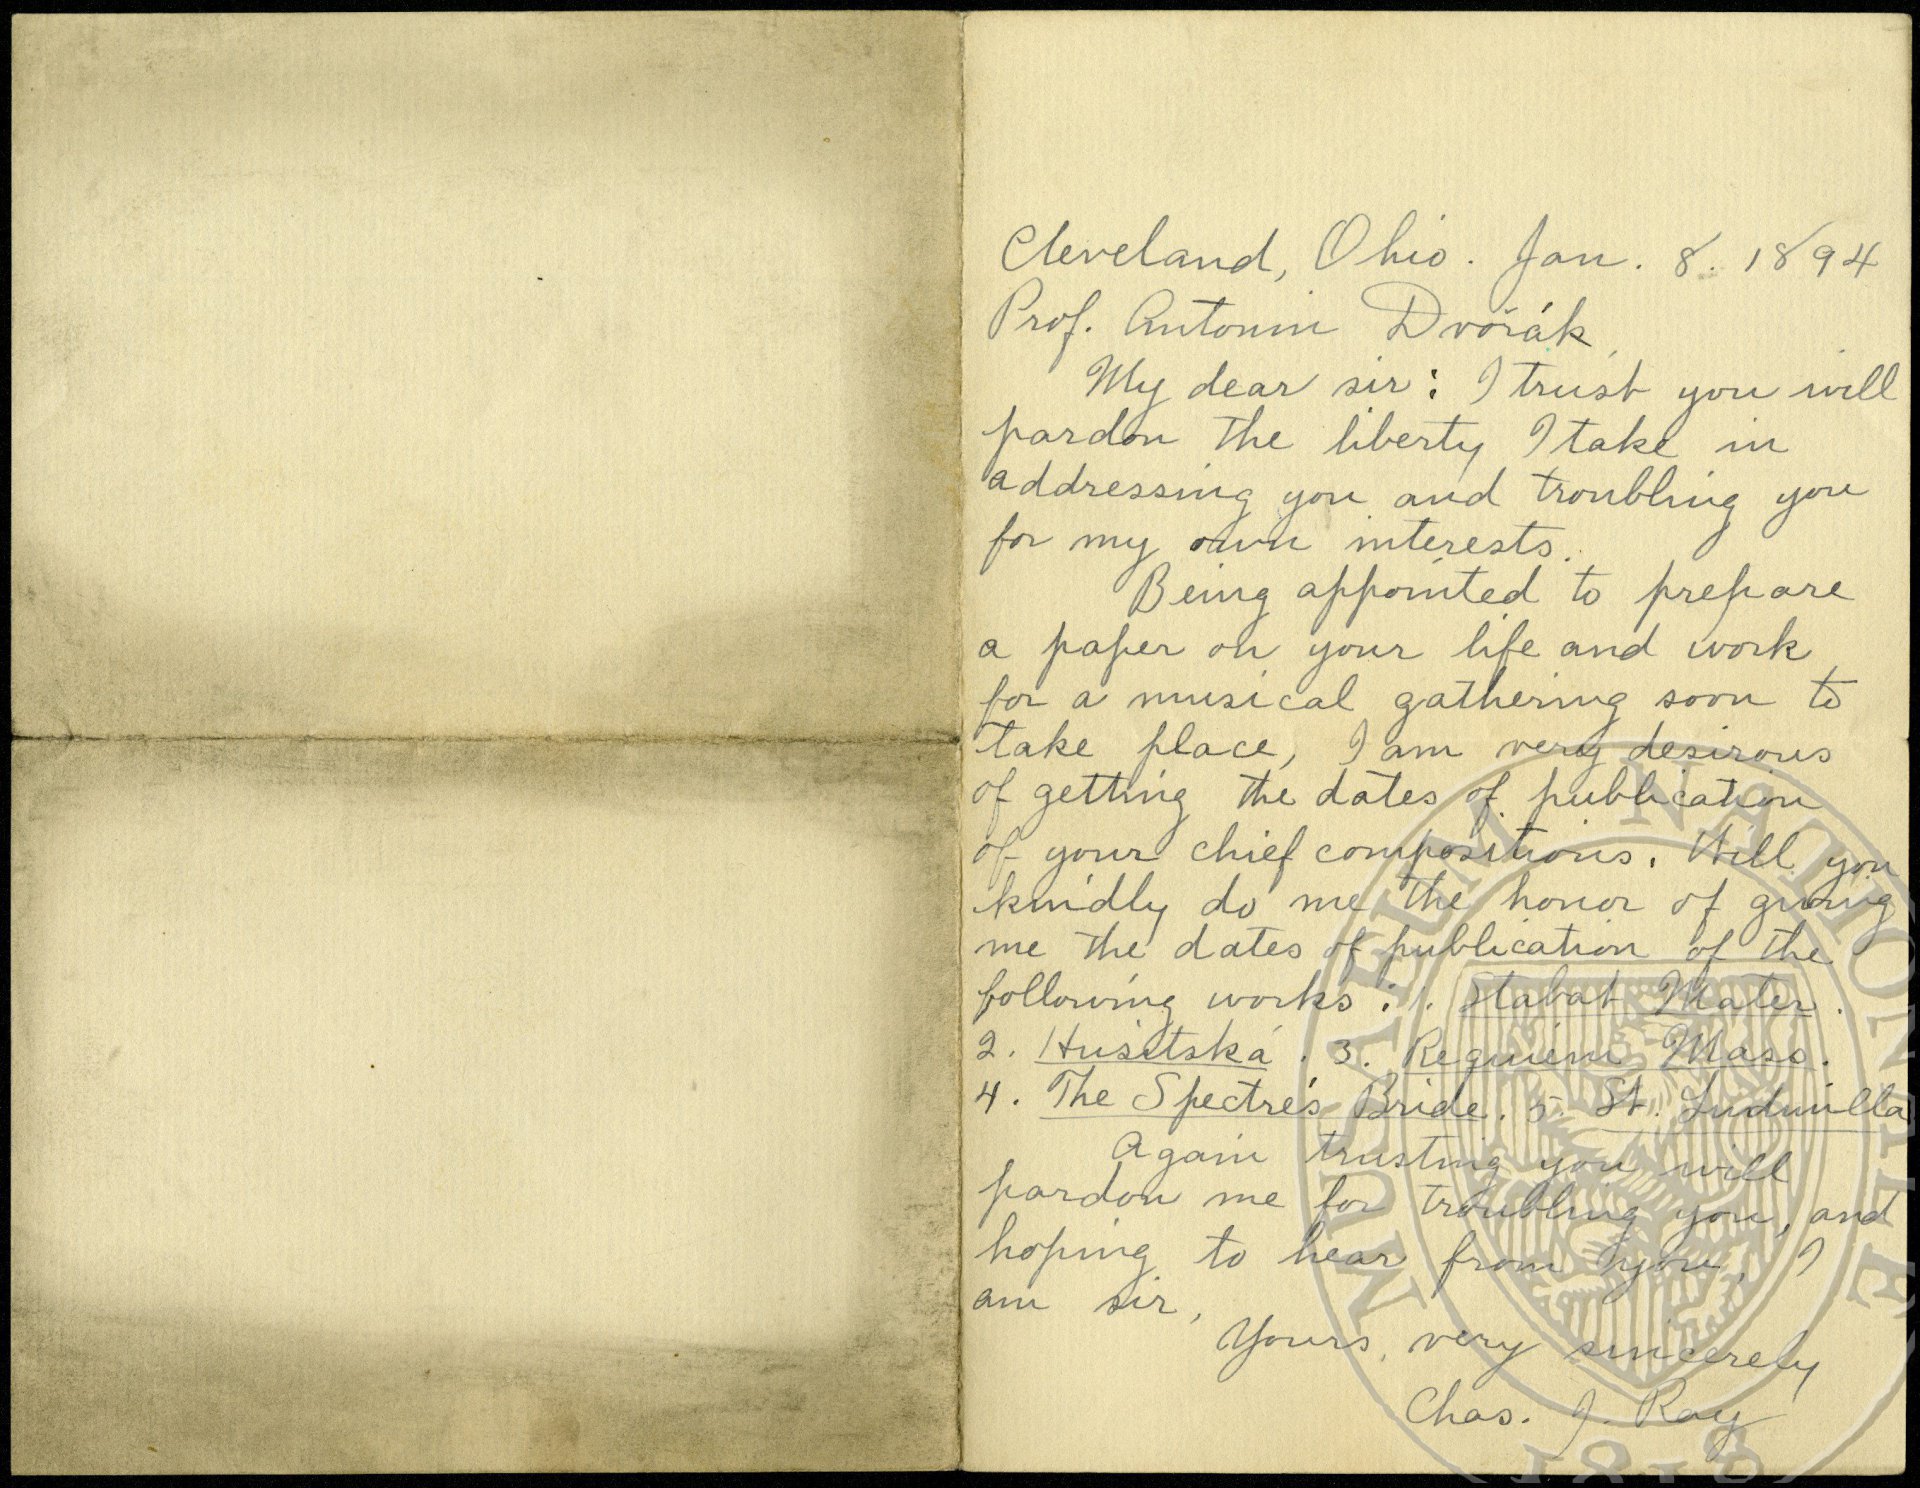 Cleveland, Ohio. Jan. 8. 1894
Prof. Antonin Dvořák,
My dear sir: I trust you will
pardon the liberty I take in
addressing you and troubling you
for my own interests.
Being appointed to prepare
a paper on your life and work
for a musical gathering soon to
take place, I am very desirous
of getting the dates of publication
of your chief compositions. Will you
kindly do me the honor of giving
me the dates of publication of the
following works: 1. Stabat Mater.
2. Husitská. 3. Requiem Mass.
4. The Spectre's Bride. 5. St. Ludmilla
Again trusting you will
pardon me for troubling you, and
hoping to hear from you, I
am sir,
Yours, very sincerely
Chas. J. Ray
MUSAEUM NATIONALE
1818